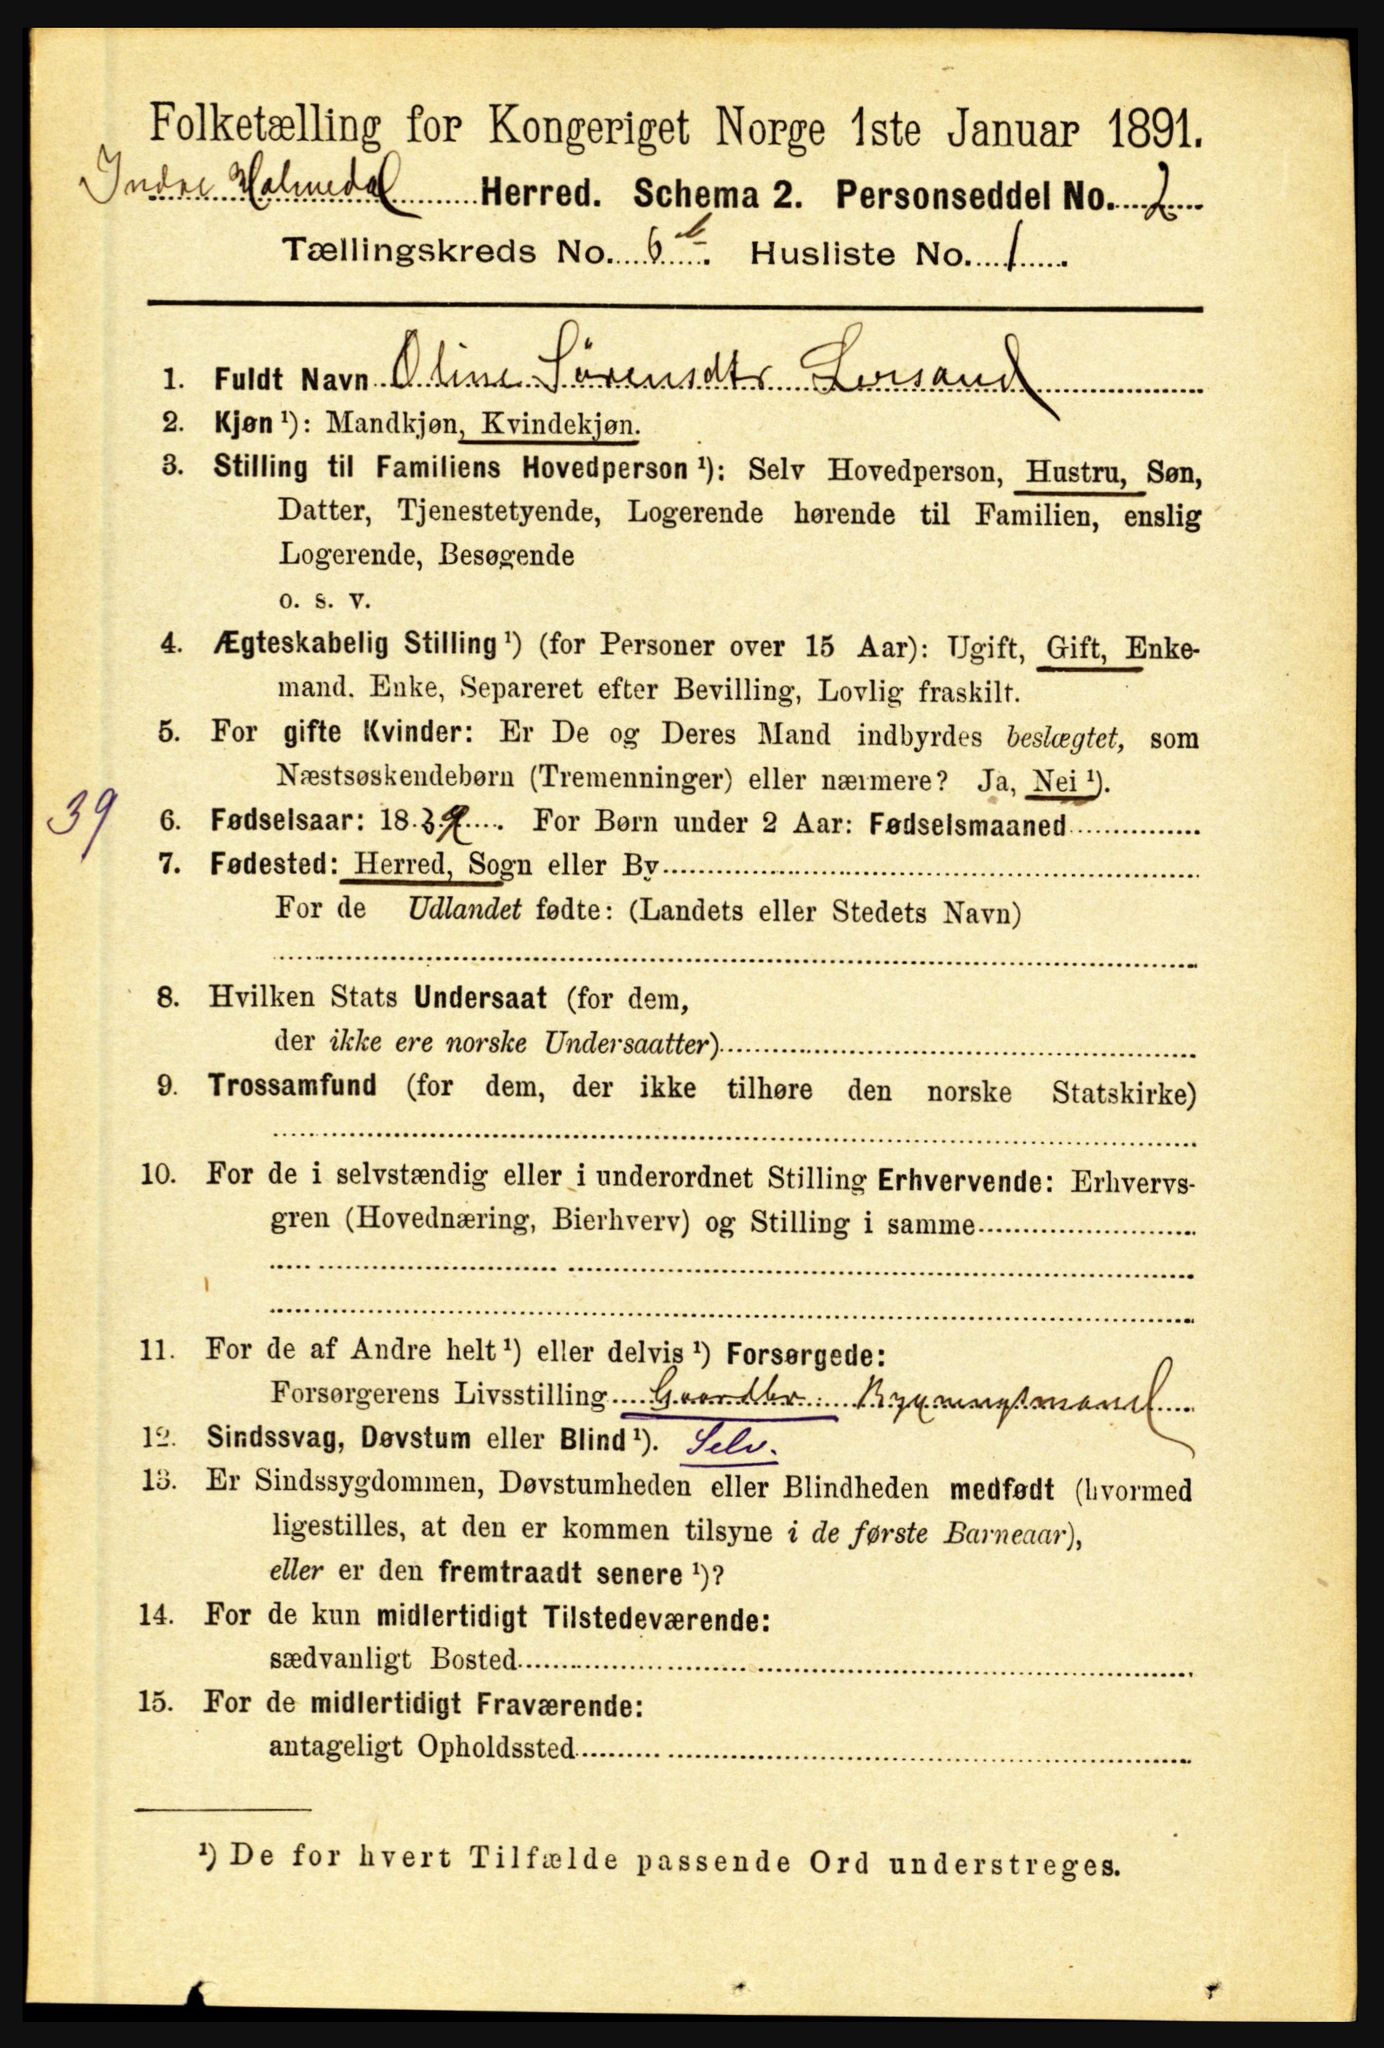 Folketælling for Kongeriget Norge 1ste Januar 1891.
Indre Holmedal Herred. Schema 2. Personseddel No. 2
Tællingskreds No. 6 b. Husliste No. 1
1. Fuldt Navn Oline Sørensdtr
2. Kjøn ¹): Mandkjøn, Kvindekjøn.
3. Stilling til Familiens Hovedperson ¹): Selv Hovedperson, Hustru, Søn,
Datter, Tjenestetyende, Logerende hørende til Familien, enslig
Logerende, Besøgende
o. s. v.
4. Ægteskabelig Stilling ¹) (for Personer over 15 Aar): Ugift, Gift, Enke-
mand. Enke, Separeret efter Bevilling, Lovlig fraskilt.
5. For gifte Kvinder: Er De og Deres Mand indbyrdes beslægtet, som
Næstsøskendebørn (Tremenninger) eller nærmere? Ja, Nei ¹).
39
6. Fødselsaar: 1839. For Børn under 2 Aar: Fødselsmaaned
7. Fødested: Herred, Sogn eller By
For de Udlandet fødte: (Landets eller Stedets Navn)
8. Hvilken Stats Undersaat (for dem,
der ikke ere norske Undersaatter)
9. Trossamfund (for dem, der ikke tilhøre den norske Statskirke)
10. For de i selvstændig eller i underordnet Stilling Erhvervende: Erhvervs-
gren (Hovednæring, Bierhverv) og Stilling i samme
11. For de af Andre helt ¹) eller delvis ¹) Forsørgede:
Forsørgerens Livsstilling Gaardbr. Bygningsmand
12. Sindssvag, Døvstum eller Blind ¹). Selv.
13. Er Sindssygdommen, Døvstumheden eller Blindheden medfødt (hvormed
ligestilles, at den er kommen tilsyne i de første Barneaar),
eller er den fremtraadt senere ¹)?
14. For de kun midlertidigt Tilstedeværende:
sædvanligt Bosted
15. For de midlertidigt Fraværende:
antageligt Opholdssted
¹) De for hvert Tilfælde passende Ord understreges.